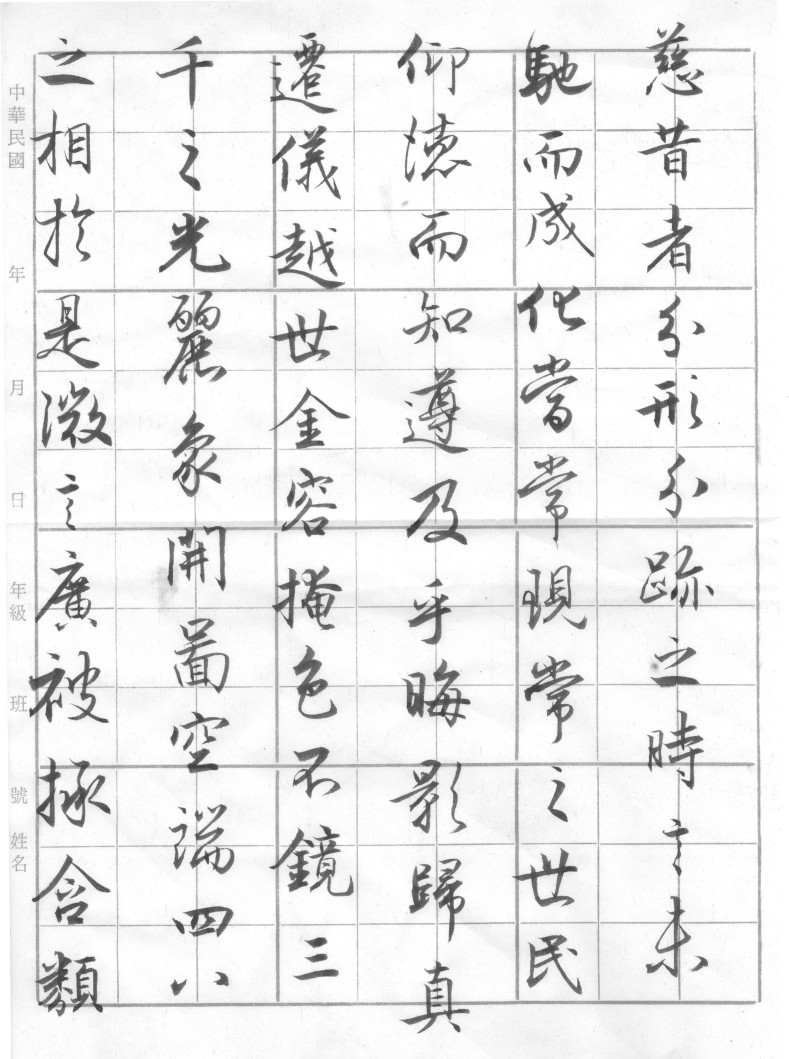 慈昔者分形分跡之時言未
馳而成化當常現常之世民
仰徳而知遵及乎晦影歸真
遷儀越世金容掩色不鏡三
千之光麗象開啚空端四八
之相扵是微言廣被拯含類
中華民國　年　月　日　年級　班　號　姓名